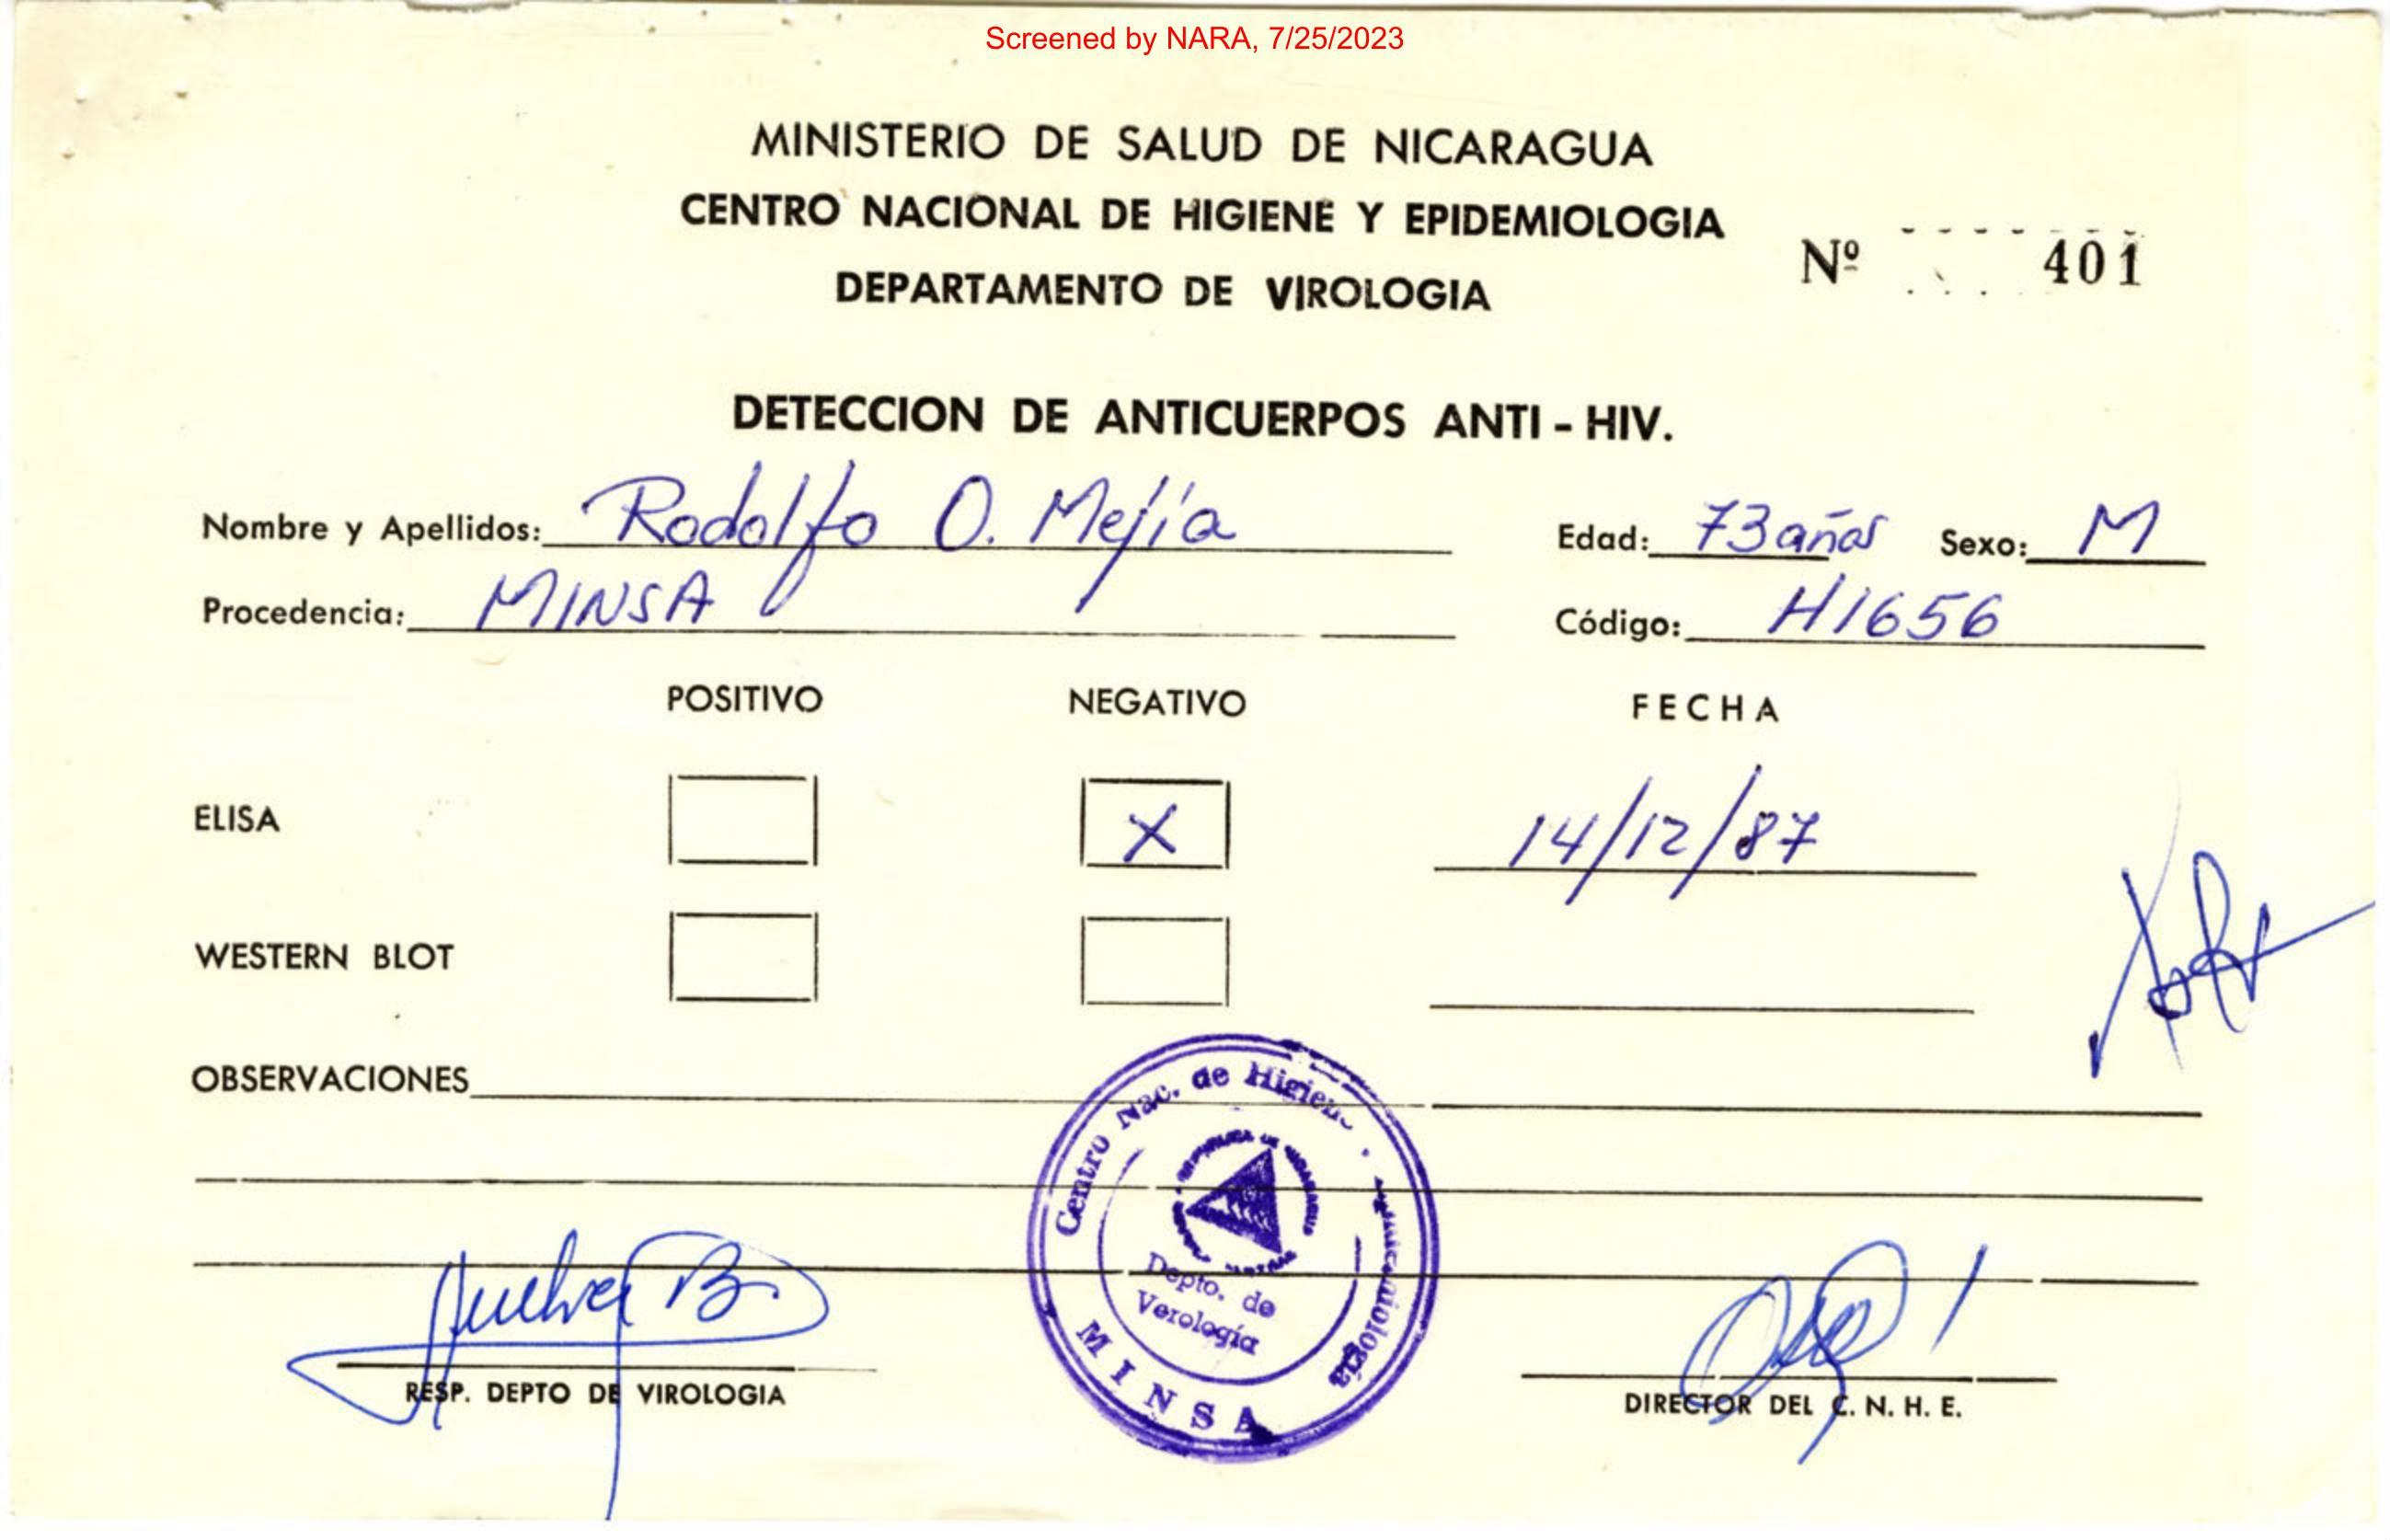 Screened by NARA, 7/25/2023
MINISTERIO DE SALUD DE NICARAGUA
CENTRO NACIONAL DE HIGIENE Y EPIDEMIOLOGIA
DEPARTAMENTO DE VIROLOGIA
Nº 401
DETECCION DE ANTICUERPOS ANTI - HIV.
Nombre y Apellidos: Rodolfo O. Mejía Edad: 73 años Sexo: M
Procedencia: MINSA Código: H1656
POSITIVO NEGATIVO FECHA
ELISA X 14/12/87
WESTERN BLOT
OBSERVACIONES
Centro Nac. de Higiene
Depto. de
Verología
MINSA
RESP. DEPTO DE VIROLOGIA
DIRECTOR DEL C. N. H. E.